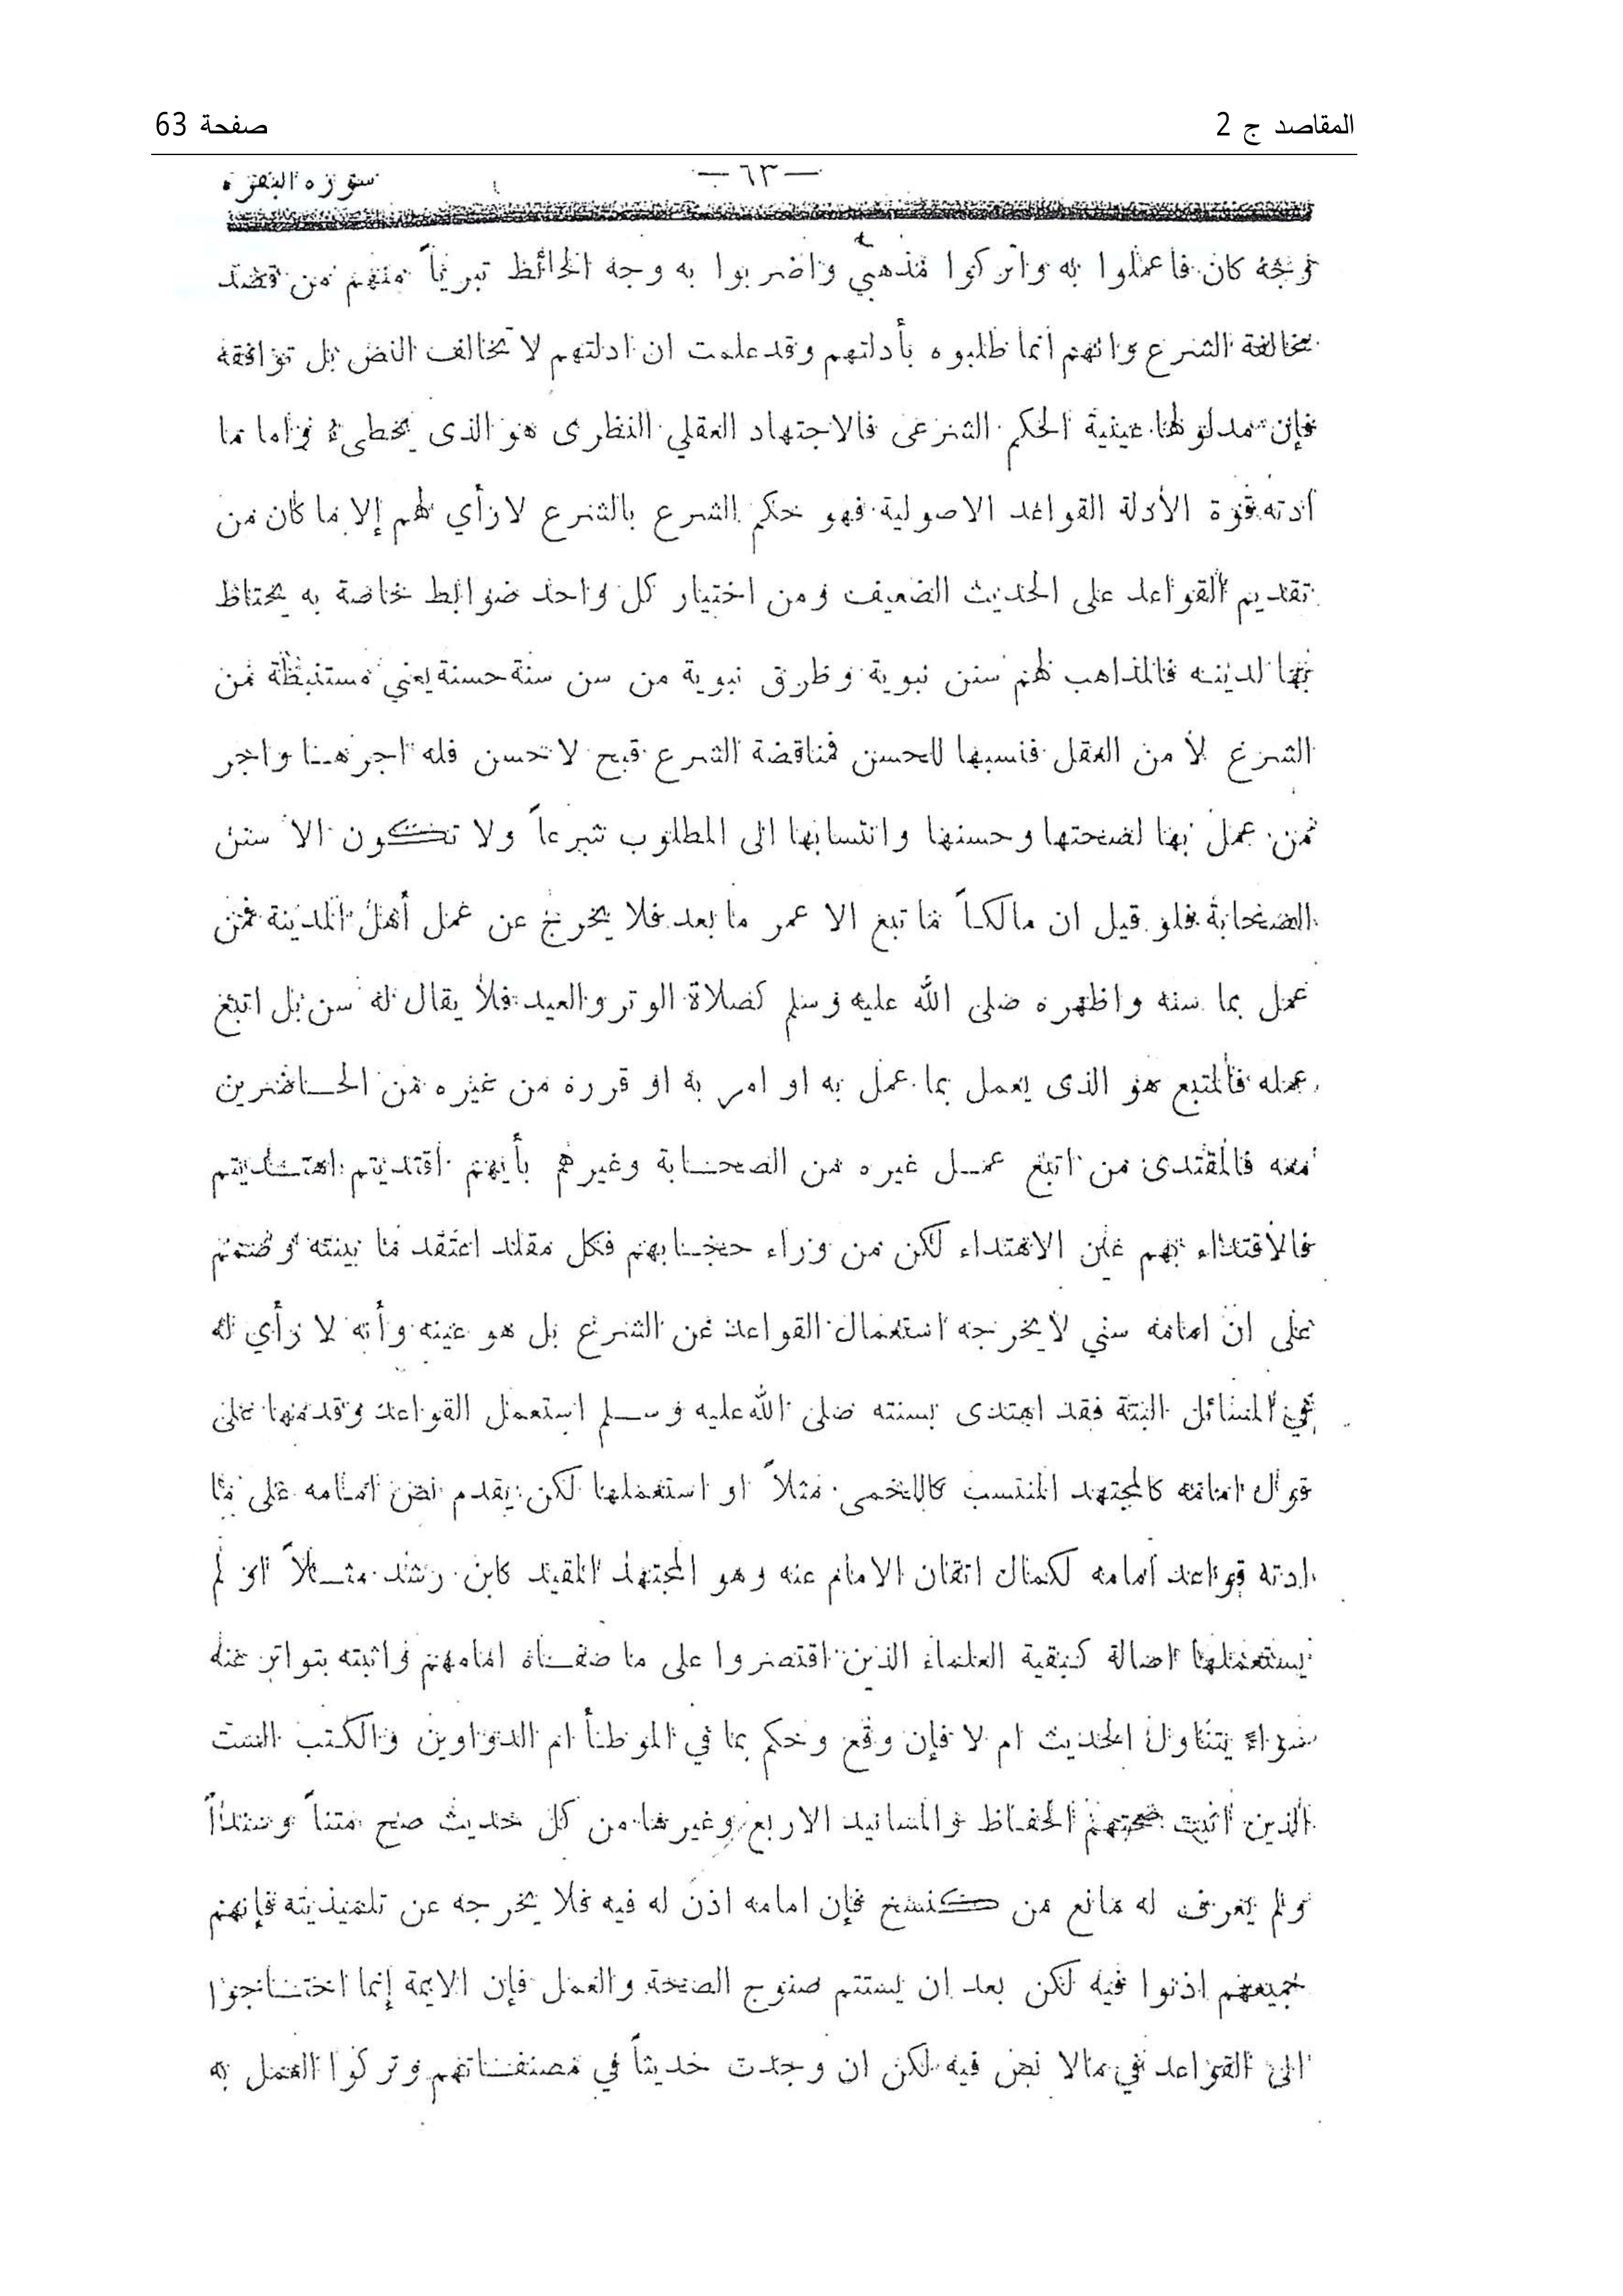 المقاصد ج 2
صفحة 63
— ٦٣ —
سورة البقرة
وجه كان فاعملوا به واتركوا مذهبي واضربوا به وجه الحائط تبرياً منهم من قصد
مخالفة الشرع وانهم انما طلبوه بأدلتهم وقد علمت ان ادلتهم لا تخالف النص بل توافقه
فإن مدلولها عينية الحكم الشرعى فالاجتهاد العقلي النظرى هو الذى يخطىء واما ما
أدته قوة الأدلة القواعد الاصولية فهو حكم الشرع بالشرع لا رأي لهم إلا ما كان من
تقديم القواعد على الحديث الضعيف ومن اختيار كل واحد ضوابط خاصة به يحتاط
بها لدينه فالمذاهب لهم سنن نبوية وطرق نبوية من سن سنة حسنة يعني مستنبطة من
الشرع لا من العقل فنسبها للحسن فمناقضة الشرع قبح لا تحسن فله اجرهـا واجر
من عمل بها لصحتها وحسنها وانتسابها الى المطلوب تبرعاً ولا تكون الا سنن
الصحابة فلو قيل ان مالكاً ما تبع الا عمر ما بعد فلا يخرج عن عمل أهل المدينة فمن
عمل بما سنه واظهره صلى الله عليه وسلم كصلاة الوتر والعيد فلا يقال له سن بل اتبع
عمله فالمتبع هو الذى يعمل بما عمل به او امر به او قرره من غيره من الحـاضرين
معه فالمقتدى من اتبع عمـل غيره من الصحـابة وغيرهم بأيهم اقتديتم اهتـديتم
فالاقتداء بهم عين الاهتداء لكن من وراء حجـابهم فكل مقلد اعتقد ما بينته وصمم
على ان امامه سني لا يخرجه استعمال القواعد عن الشرع بل هو عينه وأنه لا رأي له
في المسائل البتة فقد اهتدى بسنته صلى الله عليه وسـلم استعمل القواعد وقدمها على
قول امامه كالمجتهد المنتسب كاللخمى مثلاً او استعملها لكن يقدم نص امـامه على ما
ادته قواعد امامه لكمال اتقان الامام عنه وهو المجتهد المقيد كابن رشد مثـلاً او لم
يستعملها اصالة كبقية العلماء الذين اقتصروا على ما صفـاه امامهم واثبته بتواتر عنه
سواء يتناول الحديث ام لا فإن وقع وحكم بما في الموطأ ام الدواوين والكتب الست
الذين اثبت صحتهم الحفـاظ والمسانيد الاربع وغيرها من كل حديث صح متناً وسنداً
ولم يعرف له مانع من كنسخ فإن امامه اذن له فيه فلا يخرجه عن تلميذيته فإنهم
جميعهم اذنوا فيه لكن بعد ان يستتم صنوج الصحة والعمل فإن الايمة إنما احتـاجوا
الى القواعد في مالا نص فيه لكن ان وجدت حديثاً في مصنفـاتهم وتركوا العمل به